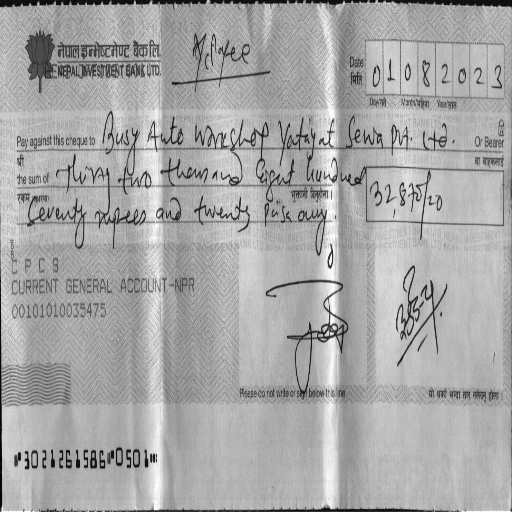 नेपाल इन्भेष्टमेण्ट बैंक लि.
NEPAL INVESTMENT BANK LTD.
A/C Payee
Date
मिति
01082023
Day/गते Month/महिना Year/साल
Pay against this cheque to Busy Auto Workshop Yatayat Sewa Pvt. Ltd. Or Bearer
श्री वा वाहकलाई
the sum of Thirty two thousand Eight hundred
रकम भुक्तानी दिनुहोला।
Seventy rupees and twenty Paisa only.
32,870/20
C P C S
CURRENT GENERAL ACCOUNT-NPR
00101010035475
Please do not write or sign below this line
यो धर्का भन्दा तल नलेख्नु होला
3021261586 0501